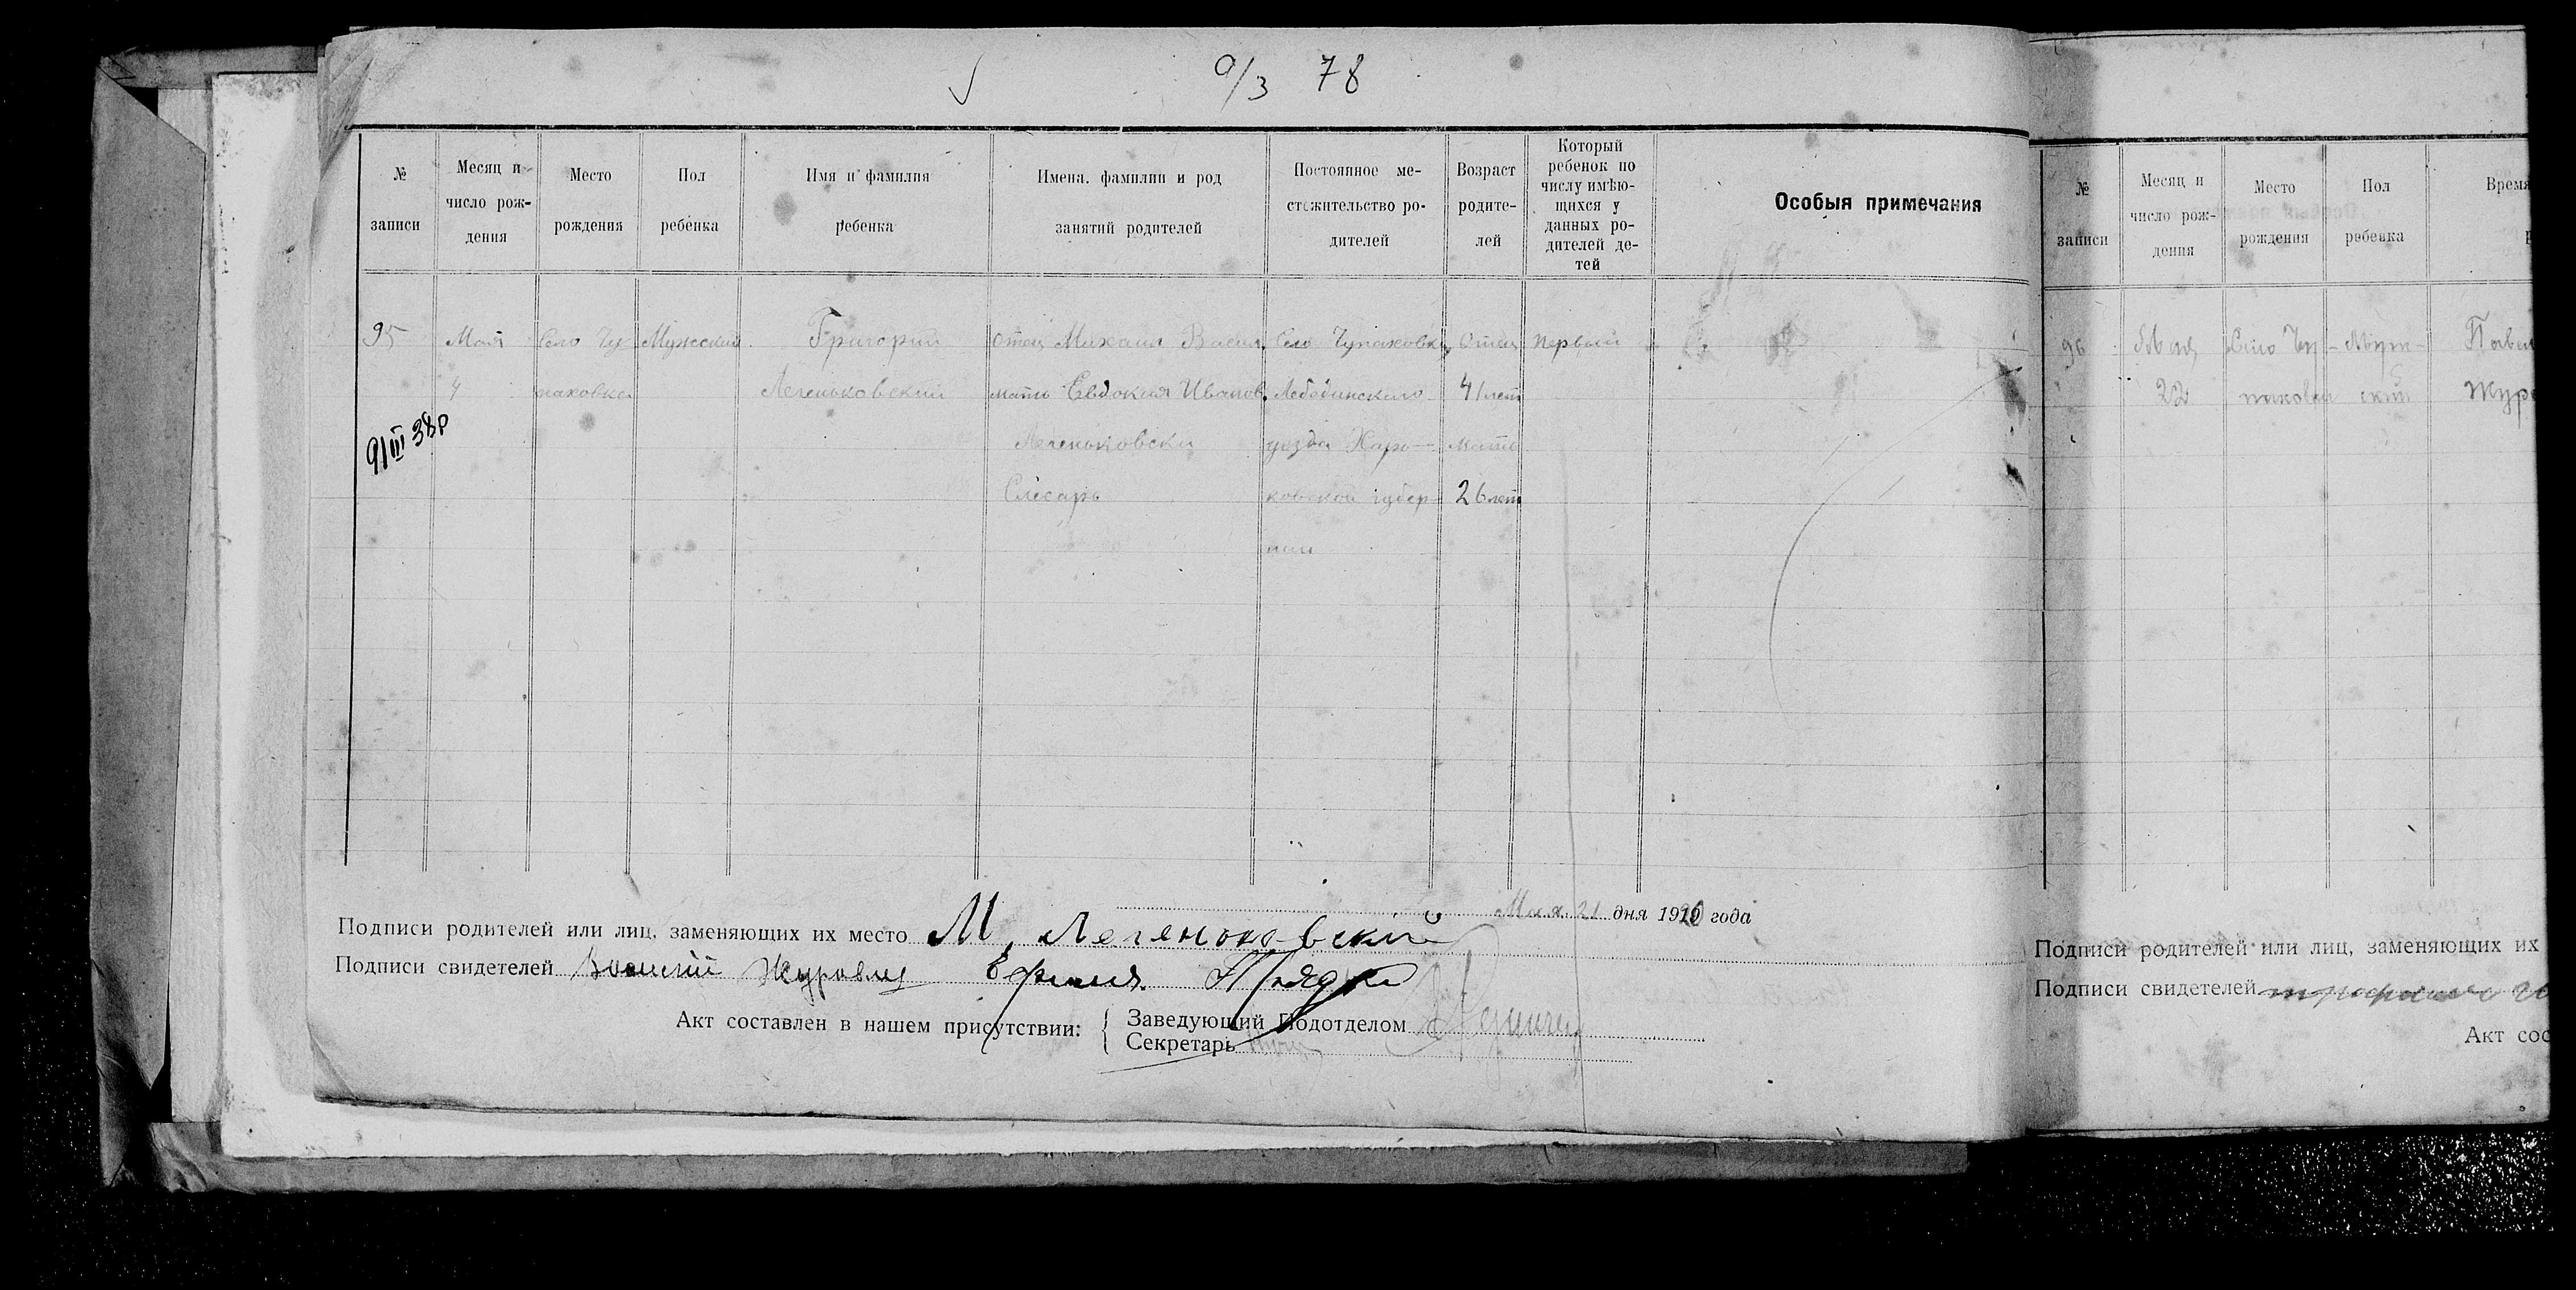 9/3 78
№ записи
Месяц и число рождения
Место рождения
Пол ребенка
Имя и фамилия ребенка
Имена, фамилии и род занятий родителей
Постоянное местожительство родителей
Возраст родителей
Который ребенок по числу имѣющихся у данных родителей детей
Особыя примечания
95 Мая Село Чу Мужеский Григорий Отец Михаил Васил. Село Чупаховка, Отец Первый
4 паховка Легеньковский мать Евдокия Иванов. Лебединского 41 лет
9/III 38р Легеньковски уезда Харь— мать
Слесарь ковской губер- 26 лет
нии
Мая 21 дня 1920 года
Подписи родителей или лиц, заменяющих их место М. Легеньковский
Подписи свидетелей Журавль Ефим Прядко
Акт составлен в нашем присутствии: Заведующий Подотделом
Секретарь
№ записи
Месяц и число рождения
Место рождения
Пол ребенка
Время
96 Мая Село Чу- Муж- Павел
22 паховка ский Жур
Подписи родителей или лиц, заменяющих их
Подписи свидетелей
Акт сос